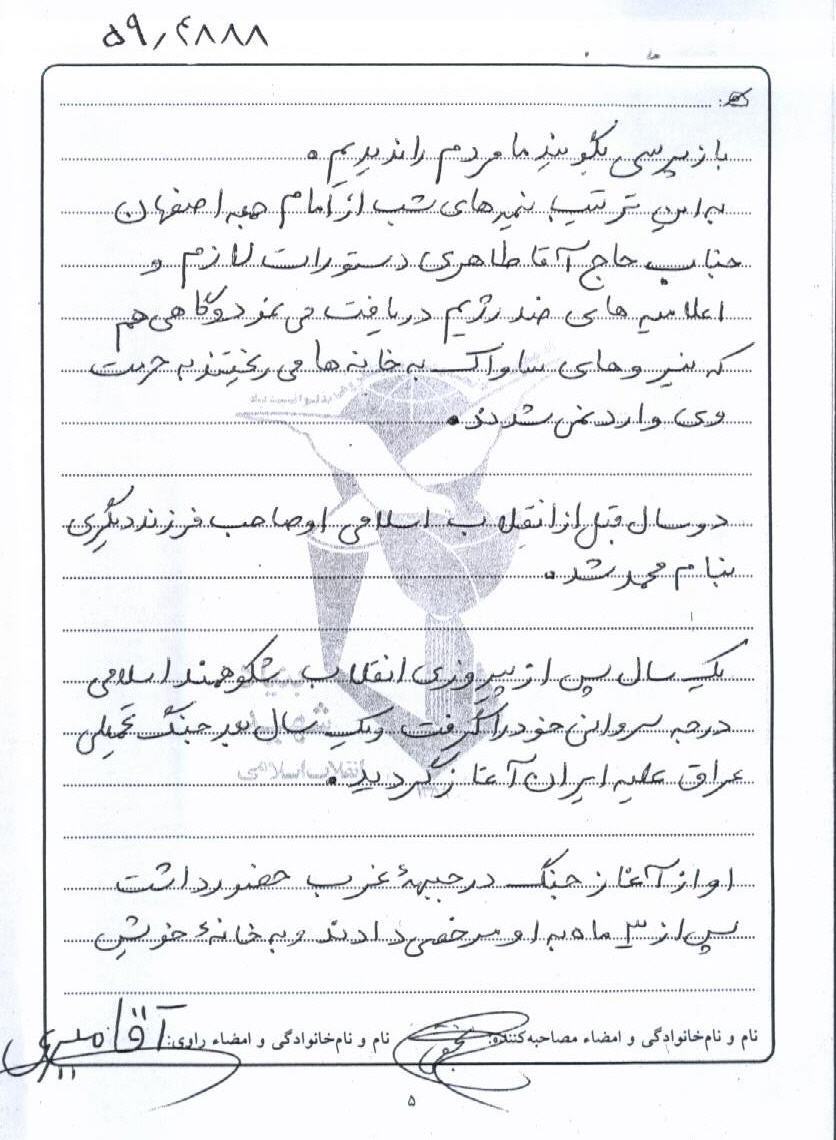 ۵۹,۴۸۸۸
بازپرسی بگویند ما مردم را ندیدیم.
به این ترتیب نیمه‌های شب از امام جمعه اصفهان
جناب حاج آقا طاهری دستورات لازم و
اعلامیه های ضد رژیم دریافت می نمود و گاهی هم
که نیروهای ساواک به خانه ها می ریختند به حرمت
وی وارد نمی شدند.
دو سال قبل از انقلاب اسلامی او صاحب فرزند دیگری
بنام محمد شد.
یک سال پس از پیروزی انقلاب شکوهمند اسلامی
درجه سروانی خود را گرفت و یک سال بعد جنگ تحمیلی
عراق علیه ایران آغاز گردید.
او از آغاز جنگ در جبههٔ غرب حضور داشت
پس از ۳ ماه به او مرخصی دادند و به خانهٔ خویش
نام و نام‌خانوادگی و امضاء مصاحبه‌کننده: نام و نام‌خانوادگی و امضاء راوی: آقا میری
۵